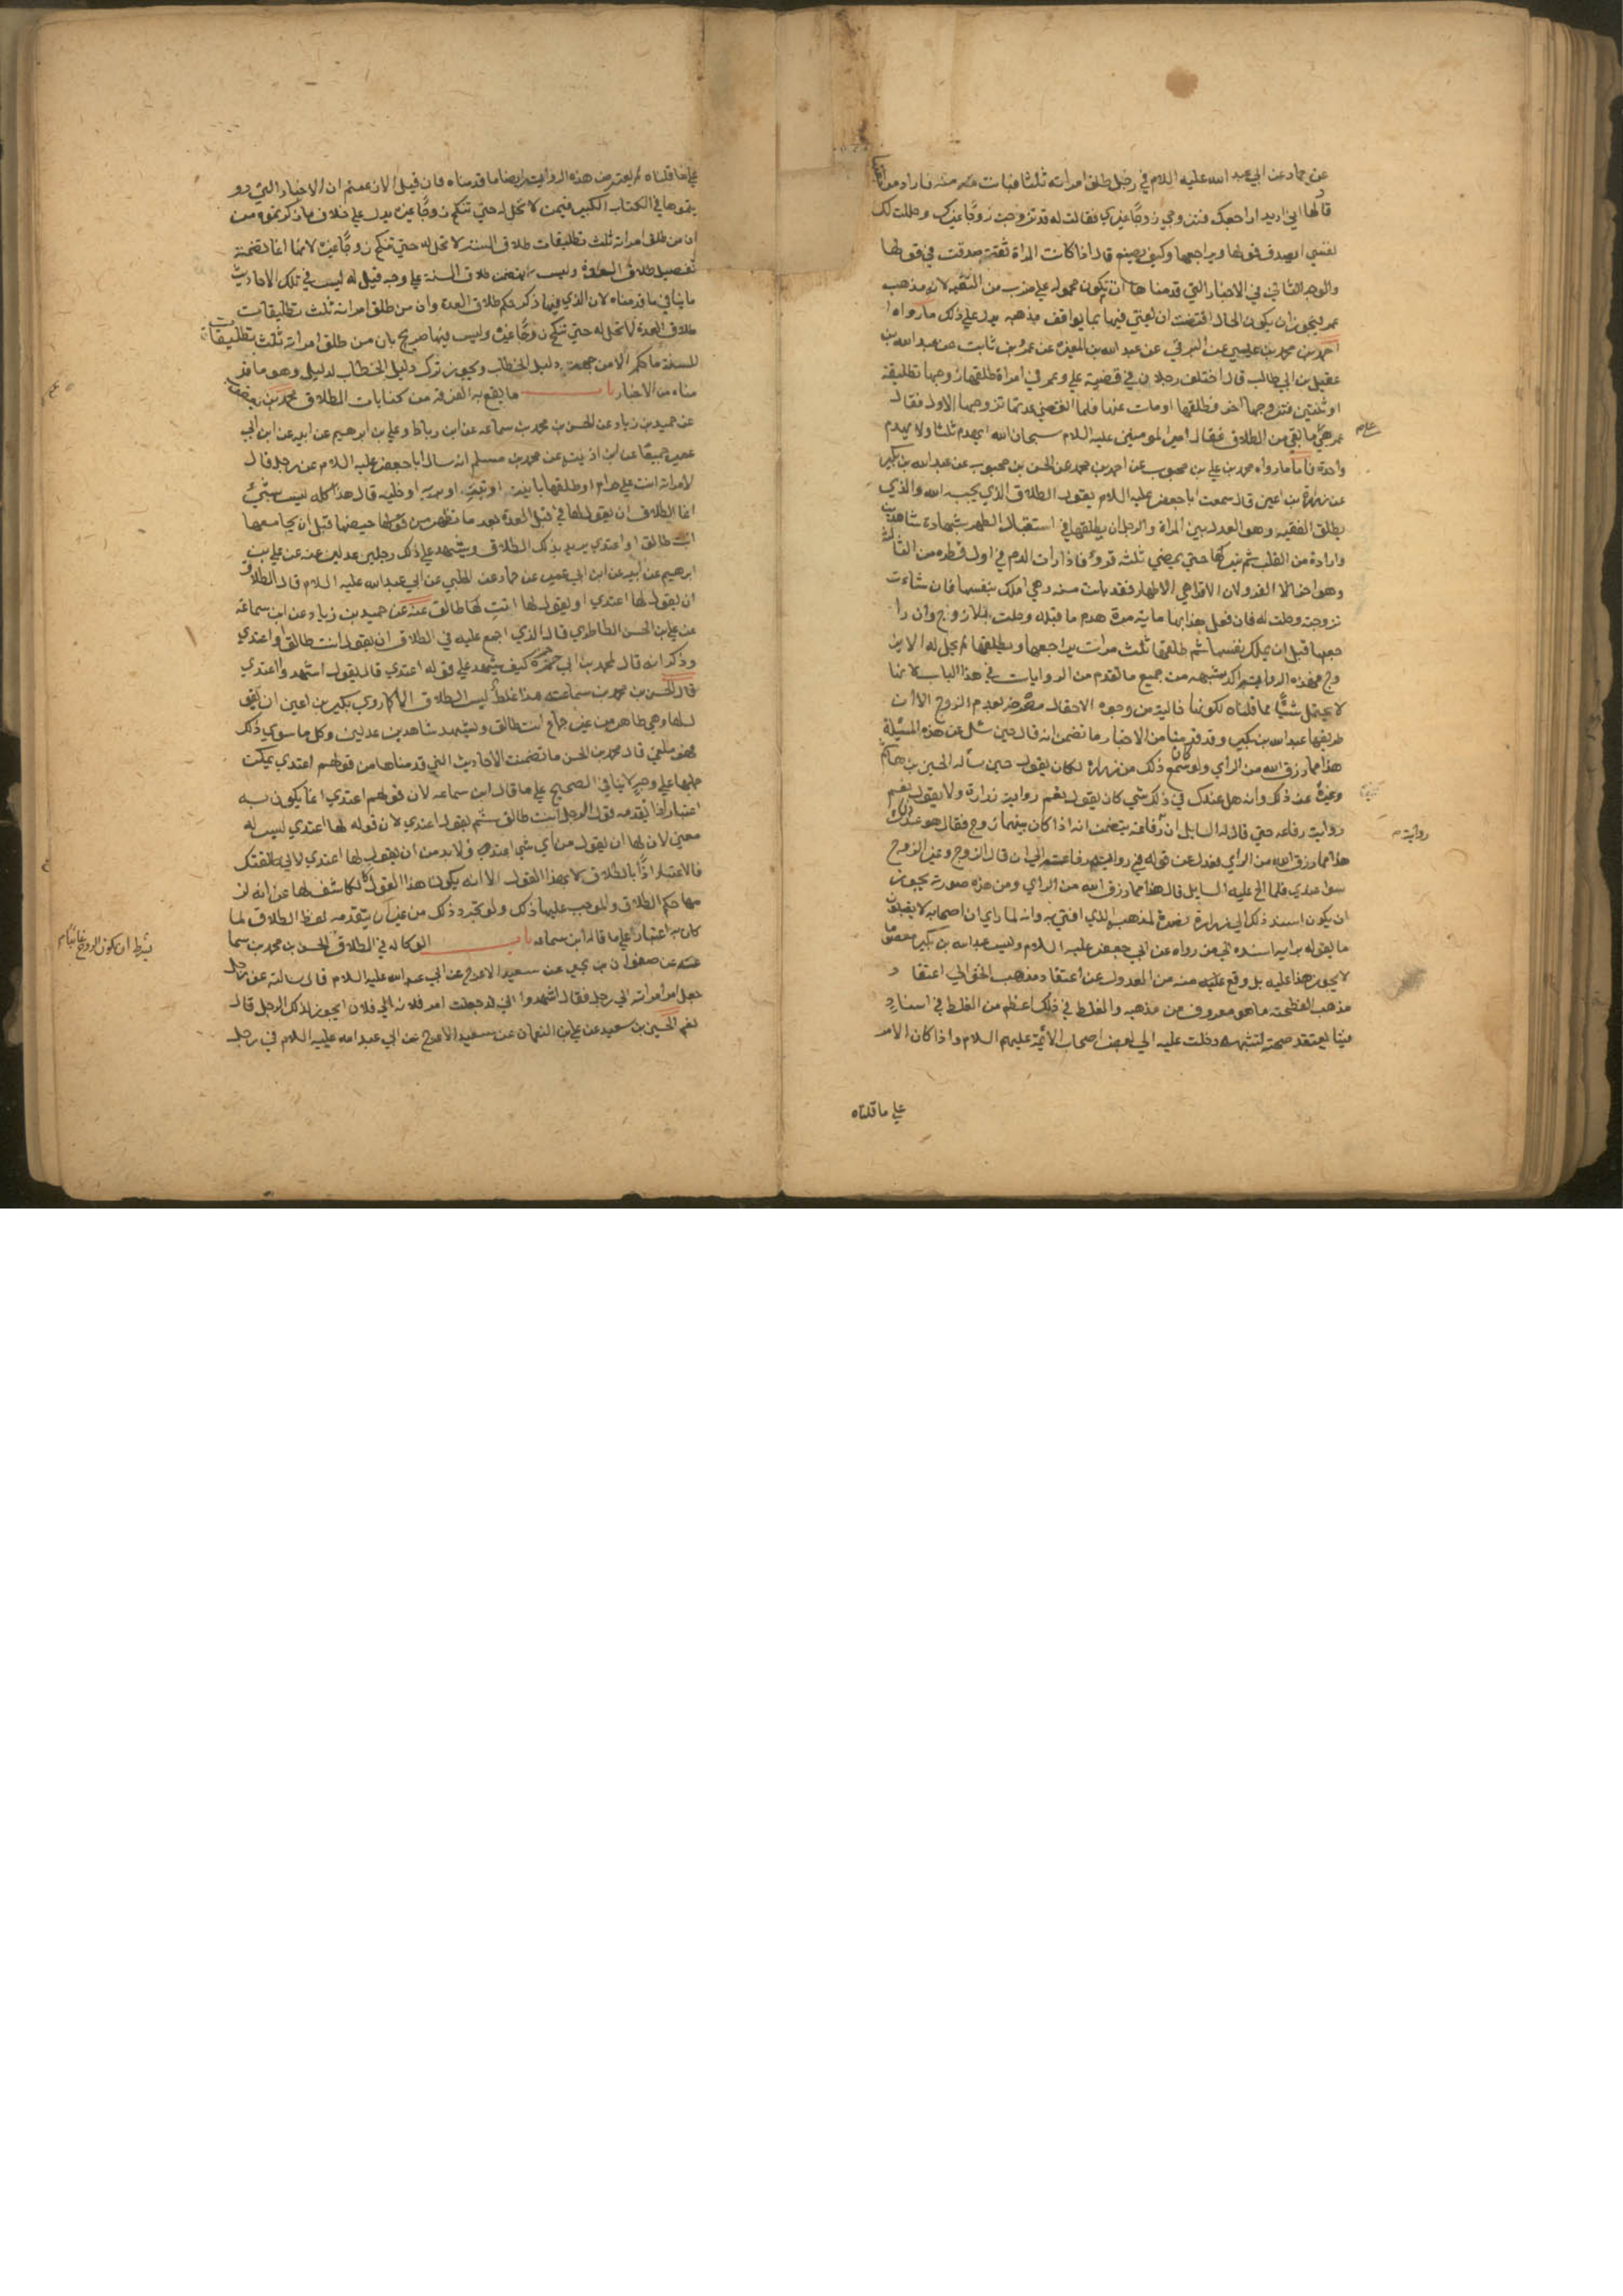 عن حماد عن ابي عبد الله عليه اللام في رجل طلق امراته ثلثا فبانت منه فاراد مراجعتها
قال لها اني اريد اراجعك فتزوجي زوجا غيري فقالت له قد تزوجت زوجا غيرك وحللت لك
نفسي ايصدق قولها ويراجعها وكيف يصنع قال اذا كانت المراة ثقة صدقت في قولها
والوجه الثاني في الاخبار التي قدمناها ان تكون محمولة على ضرب من التقيه لانه مذهب
عمر فيجوز ان يكون الحال اقتضت ان يفتي فيها بما يوافق مذهبه يدل على ذلك ما رواه
احمد بن محمد بن عيسي عن البرقي عن عبد الله بن المغيرة عن عمرو بن ثابت عن عبد الله بن
عقيل بن ابي طالب قال اختلف رجلان في قضية علي وعمر في امراة طلقها زوجها تطليقة
او ثنتين فتزوجها اخر فطلقها او مات عنها فلما انقضي عدتها تزوجها الاول فقال
عمر هي ما بقي من الطلاق فقال امير المومنين عليه اللام سبحان الله ايهدم ثلثا ولا يهدم
واحدة فاما ما رواه محمد بن علي بن محبوب عن احمد بن محمد عن الحسن بن محبوب عن عبد الله بن بكير
عن زرارة بن اعين قال سمعت ابا جعفر عليه اللام يقول الطلاق الذي يحبه الله والذي
يطلق الفقيه وهو العدل بين المراة والرجل ان يطلقها في استقبال الطهر بشهادة شاهدين
وارادة من القلب ثم يتركها حتي يمضي ثلثه قروء فاذا رات الدم في اول قطرة من الثالثة
وهو اخر القرء لان الاقرا هي الاطهار فقد بانت منه وهي املك بنفسها فان شاءت
تزوجته وحلت له فان فعل هذا بها ماية مرة هدم ما قبله وحلت بلا زوج وان را
جعها قبل ان يملك نفسها ثم طلقها ثلث مرات يراجعها ويطلقها لم يحل له الا بز
وج فهذه الرواية اكد شبهه من جميع ما تقدم من الروايات في هذا الباب لانها
لا يحتمل شيئا مما قلناه لكونها خالية من وجوه الاحتمال مصرحة بعدم الزوج الا ان
طريقها عبد الله بن بكير وقد قدمنا من الاخبار ما تضمن انه قال حين سئل عن هذه المسئلة
هذا مما رزق الله من الراي ولو كان سمع ذلك من زرارة لكان يقول حين سأله الحسين بن هاشم
وغيره عن ذلك وانه هل عندك في ذلك شي كان يقول نعم رواية زرارة ولا يقول نعم
رواية رفاعه حتي قال له السايل ان رفاعة يتضمن انه اذا كان بينهما زوج فقال هو عند ذلك
هذا مما رزق الله من الراي فعدل عن قوله في رواية رفاعة الي ان قال الزوج وغير الزوج
سوا عندي فلما الح عليه السايل قال هذا مما رزق الله من الراي ومن هذه صورته يجوز
ان يكون اسند ذلك الي زرارة نصرة لمذهبه الذي افتي به وانه لما راي ان اصحابه لا يقبلون
ما يقوله برايه اسنده الي من رواه عن ابي جعفر عليه اللام وليس عبد الله بن بكير معصوما
لا يجوز هذا عليه بل وقع عليه منه من العدول عن اعتقاد مذهب الحق الي اعتقا د
مذهب الفطحية ما هو معروف من مذهبه والغلط في ذلك اعظم من الغلط في اسناد
فتيا يعتقد صحته لشبهة دخلت عليه الي بعض اصحاب الأئمة عليهم السلام واذا كان الامر
على ما قلناه
رواية
على ما قلناه لم يعترض هذه الرواية ايضا ما قدمناه فان قيل الان عمتم ان الاخبار التي رو
يتموها في الكتاب الكبير فيمن لا تحل له حتي تنكح زوجا غيره يدل على خلاف ما ذكرتموه من
ان من طلق امراته ثلث تطليقات طلاق السنه لا تحل له حتي تنكح زوجا غيره لانها انما تضمنة
تفصيل طلاق العدة وليس يتضمن طلاق السنة على وجه قيل له ليس في تلك الاحاديث
ما ينافي ما قدمناه لان الذي فيها ذكر حكم طلاق العدة وان من طلق امراته ثلث تطليقات
طلاق العدة لا تحل له حتي تنكح زوجا غيره وليس فيها صريح بان من طلق امراته ثلث تطليقات
للسنة ما حكمه الا من جهة دليل الخطاب ويجوز ترك دليل الخطاب لدليل وهو ما قد
مناه من الاخبار باب ما يقع به الفرقة من كنايات الطلاق محمد بن يعقوب
عن حميد بن زياد عن الحسن بن محمد بن سماعه عن ابن رباط وعلي بن ابرهيم عن ابيه عن ابن ابي
عمير جميعا عن ابن اذينه عن محمد بن مسلم انه سال ابا جعفر عليه اللام عن رجل قال
لامراته انت علي حرام او طلقها باينة او بتة او بريه او خليه قال هذا كله ليس بشئ
انما الطلاق ان يقول لها في قبل العدة بعد ما تطهر من حيضها قبل ان يجامعها
انت طالق او اعتدي يريد بذلك الطلاق ويشهد على ذلك رجلين عدلين عنه عن علي بن
ابرهيم عن ابيه عن ابن ابي عمير عن حماد عن الحلبي عن ابي عبد الله عليه اللام قال الطلاق
ان يقول لها اعتدي او يقول لها انت طالق عنه عن حميد بن زياد عن ابن سماعه
عن علي بن الحسن الطاطري قال الذي اجمع عليه في الطلاق ان يقول انت طالق او اعتدي
وذكر انه قال لمحمد بن ابي حمزة كيف يشهد على قوله اعتدي قال يقول اشهدوا اعتدي
قال الحسن بن محمد بن سماعه هذا غلط ليس الطلاق الا كما روي بكير بن اعين ان يقول
لها وهي طاهر من غير جماع انت طالق ويشهد شاهدين عدلين وكل ما سوي ذلك
فهو ملغي قال محمد بن الحسن ما تضمنت الأحاديث التي قدمناها من قولهم اعتدي يمكن
حملها على وجه لا ينافي الصحيح على ما قال ابن سماعه لان قولهم اعتدي انما يكون به
اعتبار اذا تقدمه قول الرجل انت طالق ثم يقول اعتدي لان قوله لها اعتدي ليس له
معني لان لها ان يقول من أي شي اعتد فلا بد من ان يقول لها اعتدي لاني طلقتك
فالاعتبار اذا بالطلاق لا بهذا القول الا انه يكون هذا القول كالكاشف لها عن انه لز
مها حكم الطلاق والموجب عليها ذلك ولو تجرد ذلك من غير ان يتقدمه لفظ الطلاق لما
كان به اعتبار على ما قاله ابن سماعه باب الوكاله في الطلاق الحسن بن محمد بن سما
عنه عن صفوان بن يحيي عن سعيد الاعرج عن ابي عبد الله عليه اللام قال سالته عن رجل
جعل امر امراته الي رجل فقال اشهدوا اني قد جعلت امر فلانه الي فلان ايجوز ذلك للرجل قال
نعم الحسين بن سعيد عن علي بن النعمان عن سعيد الاعرج عن ابي عبد الله عليه اللام في رجل
بشرط ان يكون الزوج غائبا